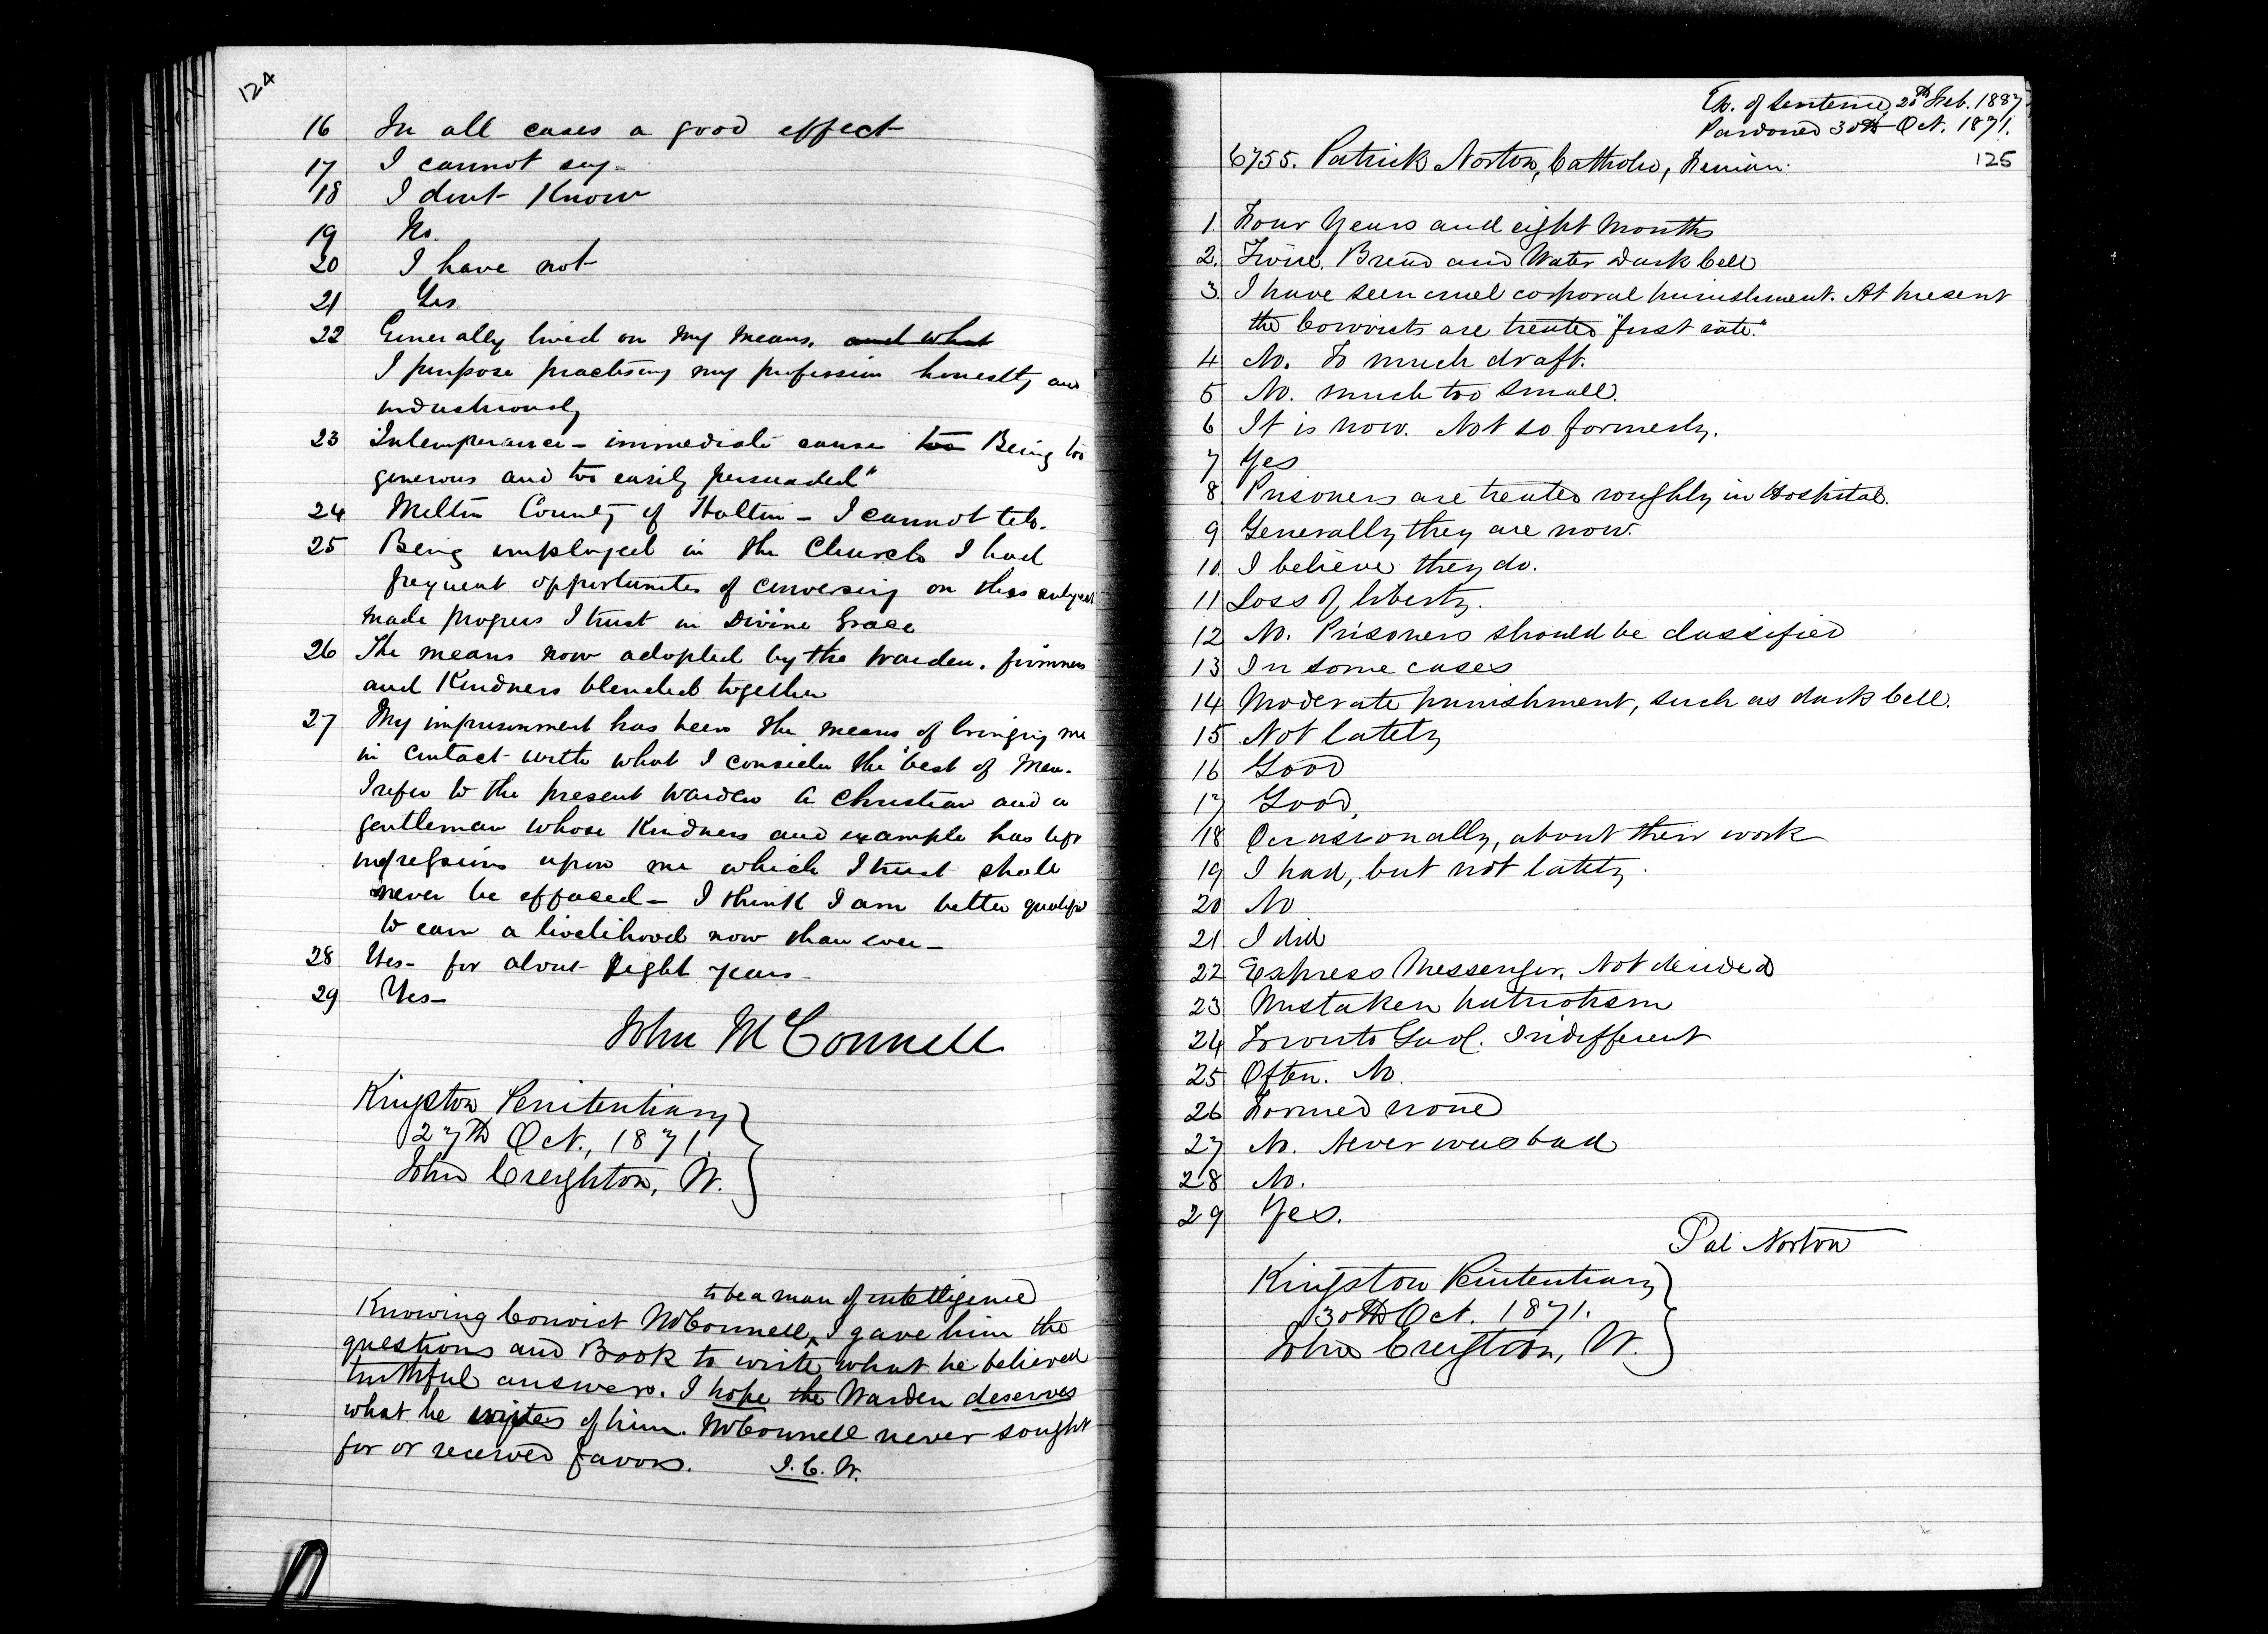 124
16 In all cases a good effect
17 I cannot say
18 I dont Know
19 No.
20 I have not
21 Yes
22 Generally lived on my means. and what
I purpose practising my profession honestly and
industriously
23 Intemperance - immediate cause too Being too
generous and too easily persuaded"
24 Milton County of Halton - I cannot tell.
25 Being employed in the Church I had
frequent opportunities of conversing on this subject
made progress I trust in Divine Grace
26 The means now adopted by the Warden. firmness
and Kindness blended together
27 My imprisonment has been the means of bringing me
in contact with what I consider the best of Men.
I refer to the present Warden a Christian and a
gentleman whose Kindness and example has left
impressions upon me which I trust shall
never be effaced - I think I am better qualified
to earn a livelihood now than ever -
28 Yes - for about Eight years -
29 Yes -
John McConnell
Kingston Penitentiary
27th Oct., 1871.
John Creighton, W.
to be a man of intelligence
Knowing Convict McConnell, ^ I gave him the
questions and Book to write what he believed
truthful answers. I hope the Warden deserves
what he writes of him. McConnell never sought
for or received favors. J.C. W.
Ex. of Sentence, 20th Feb. 1887
Pardoned 30th Oct. 1871.
125
6755. Patrick Norton, Catholic, Fenian.
1 Four Years and eight Months
2. Twice. Bread and Water Dark Cell
3. I have seen cruel corporal punishment. At present
the Convicts are treated "first rate."
4 No. To much draft.
5 No. much too small.
6 It is now. Not so formerly.
7 Yes
8 Prisoners are treated roughly in Hospital.
9 Generally they are now.
10. I believe they do.
11 Loss of liberty.
12 No. Prisoners should be classified
13 In some cases
14 Moderate punishment, such as dark Cell.
15 Not lately
16 Good
17 Good,
18 Occasionally, about their work
19 I had, but not lately.
20 No
21 I did
22 Express Messenger. Not decided
23 Mistaken patriotism
24 Toronto Gaol. Indifferent
25 Often. No.
26 Formed none
27 No. Never was bad
28 No.
29 Yes.
Pat Norton
Kingston Penitentiary
30th Oct. 1871.
John Creighton, W.